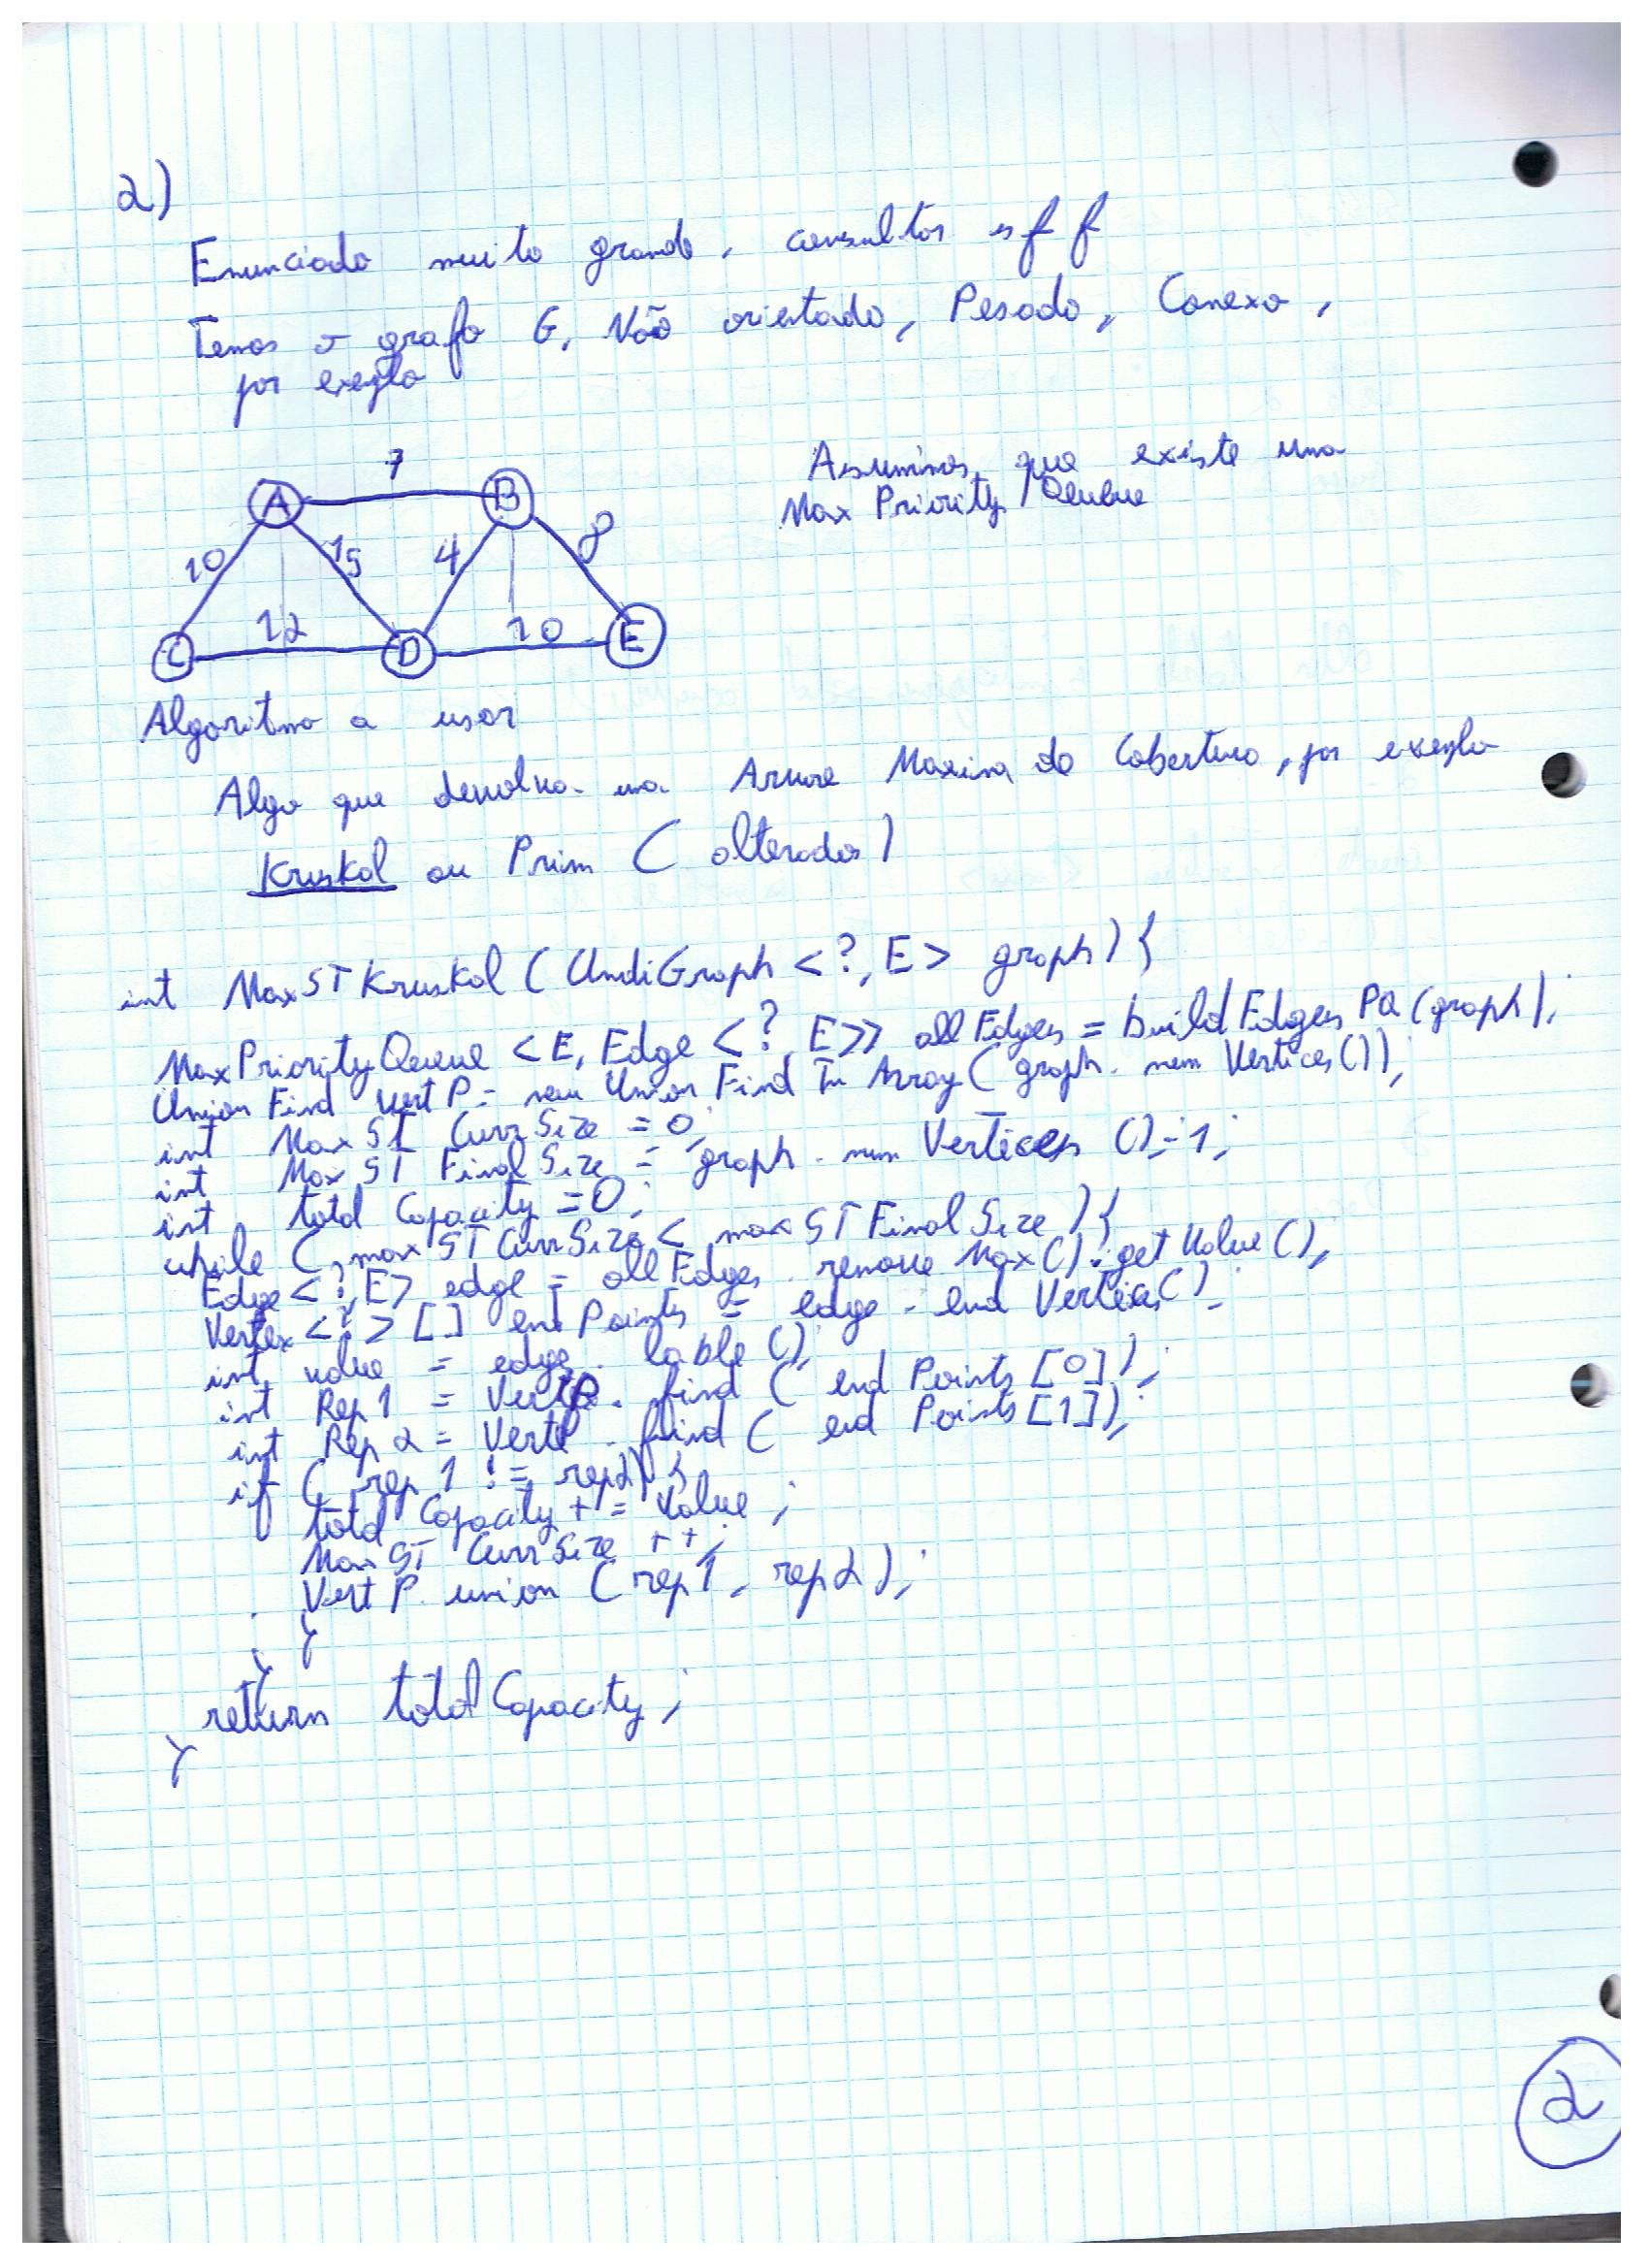 2)
Enunciado muito grande, consultar sff
Temos o grafo G, Não orientado, Pesado, Conexo,
por exemplo
Assumimos que existe uma
Max Priority Queue
7
A B
10 15 4 8
12 10
C D E
Algoritmo a usar
Algo que devolva uma Arvore Maxima de Cobertura, por exemplo
Kruskal ou Prim (alterados)
int MaxSTKruskal (UndiGraph <?, E> graph) {
MaxPriorityQueue <E, Edge <?, E>> allEdges = buildEdgesPQ (graph);
UnionFind vertP = new UnionFindInArray (graph.numVertices());
int MaxST CurrSize = 0;
int MaxST FinalSize = graph.numVertices()-1;
int totalCapacity = 0;
while (maxSTCurrSize < maxSTFinalSize) {
Edge <?, E> edge = allEdges.removeMax().getValue();
Vertex <?> [] endPoints = edge.endVertices();
int value = edge.lable();
int Rep1 = VertP.find (endPoints [0]);
int Rep2 = VertP.find (endPoints [1]);
if (rep1 != rep2) {
totalCapacity += value;
MaxST CurrSize ++;
VertP.union (rep1, rep2);
}
}
return totalCapacity;
}
2